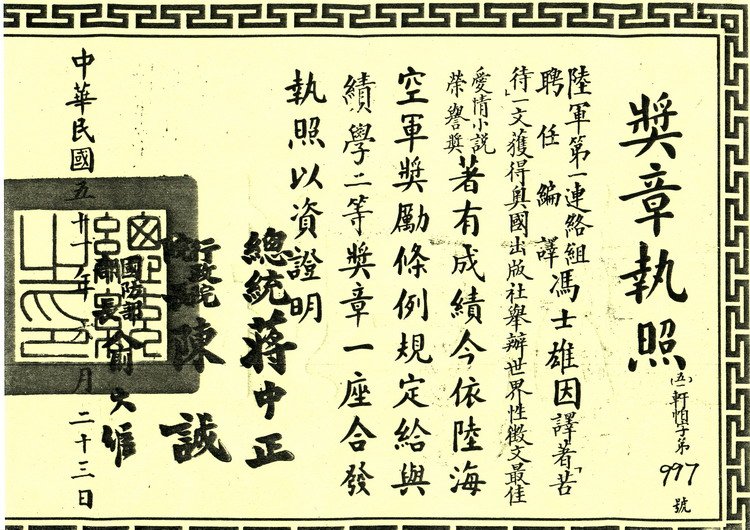 獎章執照
(五一)軒怕字第
997
號
陸軍第一連絡組
聘任編譯
馮士雄因譯著「苦
待」一文獲得奧國出版社舉辦世界性徵文最佳
愛情小說
榮譽獎
著有成績今依陸海
空軍獎勵條例規定給與
績學二等獎章一座合發
執照以資證明
總統蔣中正
行政院
院長
陳誠
國防部
部長
俞大維
中華民國五十一年 月二十三日